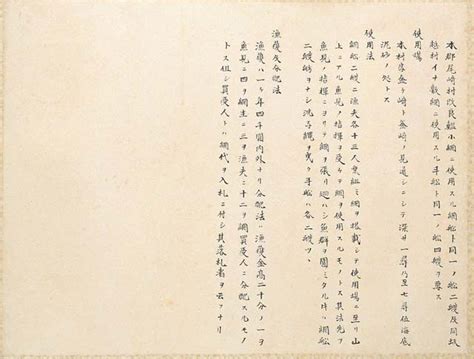 本郡尾崎村改良鰮小網ニ使用スル網船ト同一ノ船二艘及同坂
越村イナ敷網ニ使用スル手船ト同一ノ船四艘ヲ要ス
使用場
本村字釜ケ崎ト釜崎ノ見通シニシテ深サ一尋乃至七尋位海底
泥砂ノ処トス
使用法
網船二艘ニ漁夫各十三人乗組ミ網ヲ搭載シテ使用場ニ至リ山
上ニアル魚見ノ指揮ヲ受ケテ網ヲ使用スルモノトス其法先ツ
魚見ノ指揮ニヨリテ網ヲ張リ廻ハシ魚群ヲ囲ミタル時ハ網船
二艘ヲナシ沈子縄ヲ曳ク手船ハ各二艘ツヽ
漁獲及分配法
漁獲ハ一ケ年四千円内外ナリ分配法ハ漁獲金高二十分ノ一ヲ
魚見ニ四ヲ網主ニ三ヲ漁夫ニ十二ヲ網買優人ニ分配スルモノ
トス但シ買優人トハ網代ヲ入札ニ付シ其落札者ヲ云フナリ